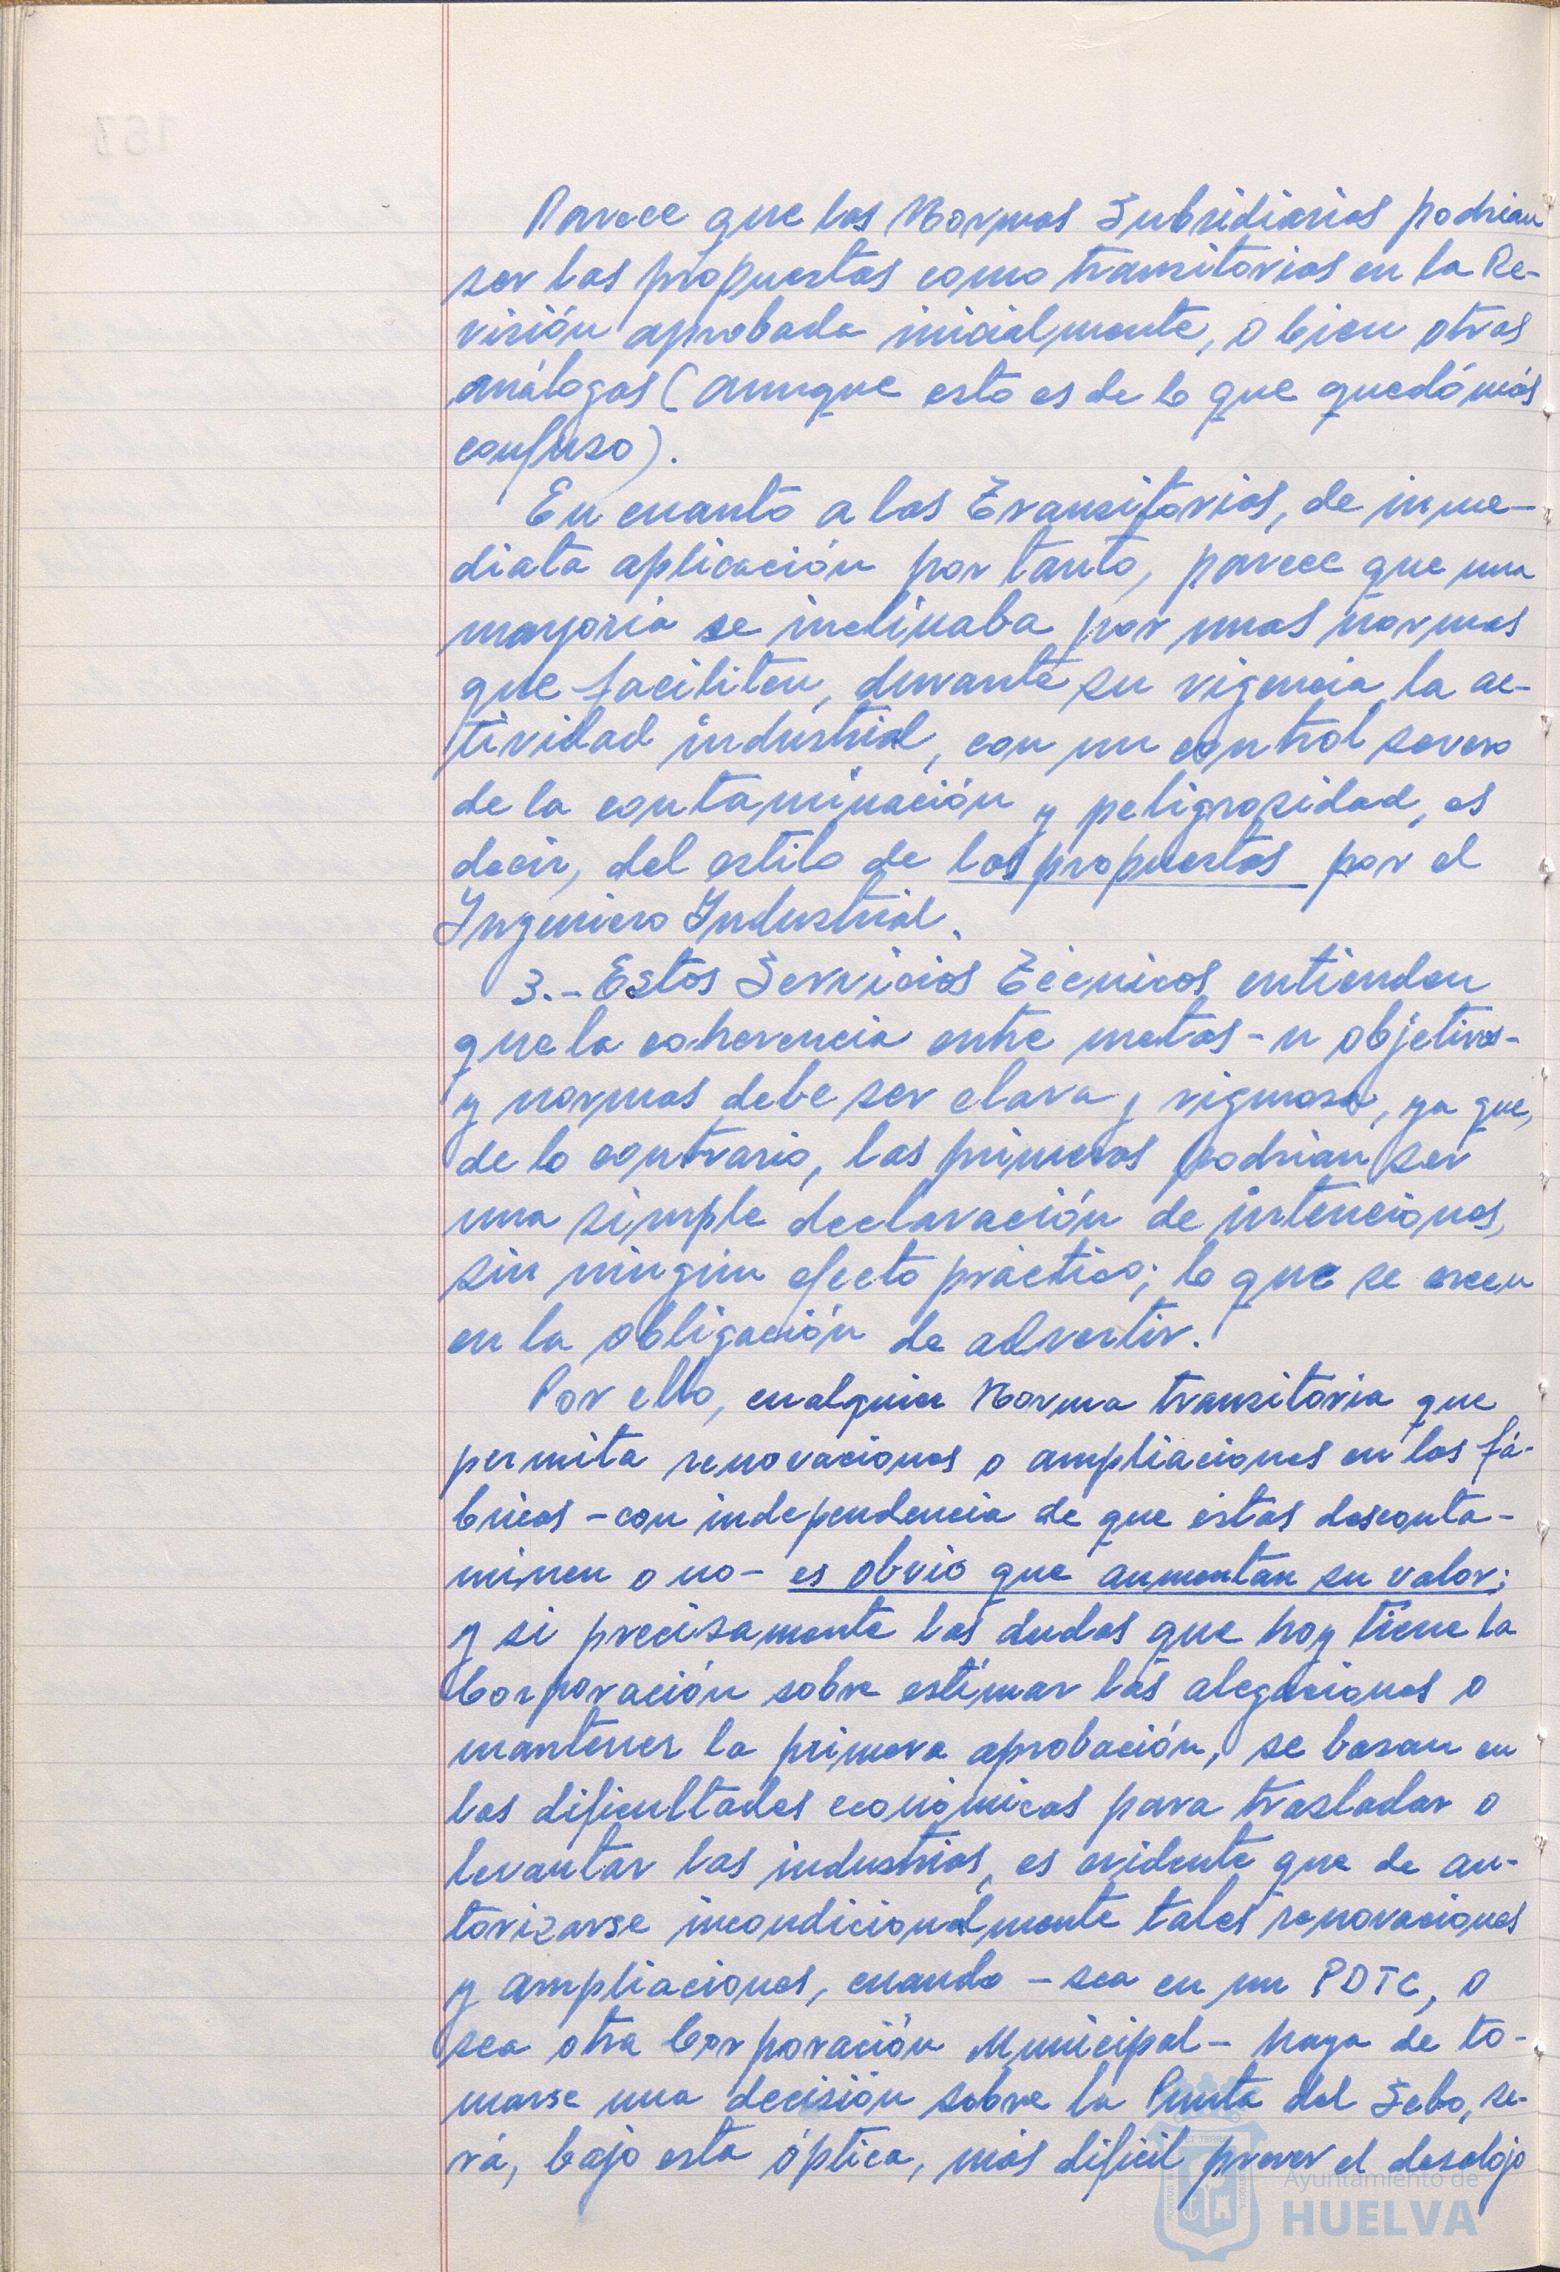 Parece que las Normas Subsidiarias podrian
ser las propuestas como transitorias en la Re-
visión aprobada inicialmente, o bien otras
análogas (aunque esto es de lo que quedó más
confuso).
En cuanto a las Transitorias, de inme-
diata aplicación por tanto, parece que una
mayoria se inclinaba por unas normas
que faciliten, durante su vigencia, la ac-
tividad industrial, con un control severo
de la contaminación y peligrosidad, es
decir, del estilo de las propuestas por el
Ingeniero Industrial.
3.- Estos Servicios Técnicos entienden
que la coherencia entre metas - u objetivos -
y normas debe ser clara y rigurosa, ya que,
de lo contrario, las primeras podrian ser
una simple declaración de intenciones,
sin ningún efecto práctico; lo que se creen
en la obligación de advertir.
Por ello, cualquier Norma transitoria que
permita renovaciones o ampliaciones en las fá-
bricas - con independencia de que éstas desconta-
minen o no - es obvio que aumentan su valor;
y si precisamente las dudas que hoy tiene la
Corporación sobre estimar las alegaciones o
mantener la primera aprobación, se basan en
las dificultades económicas para trasladar o
levantar las industrias, es evidente que de au-
torizarse incondicionalmente tales renovaciones
y ampliaciones, cuando - sea en un PDTC, o
sea otra Corporación Municipal - haya de to-
marse una decisión sobre la Punta del Sebo, se-
rá, bajo esta óptica, más dificil prever el desalojo
Ayuntamiento de
HUELVA